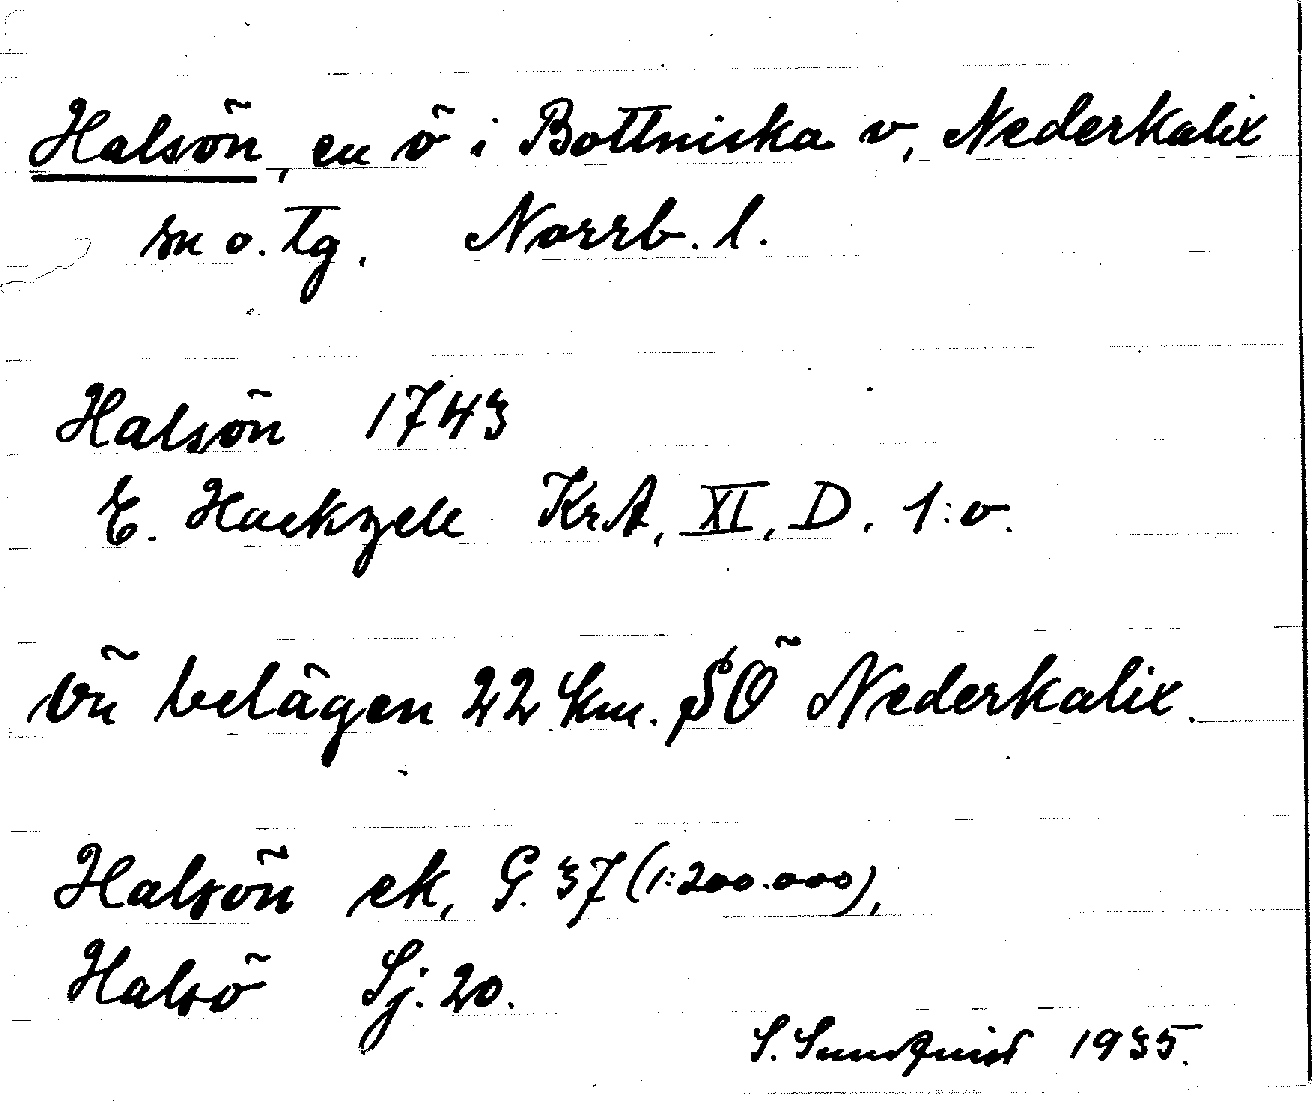 Halsön, en ö i Bottniska v, Nederkalix
sn o. tg, Norrb. l.
Halsön 1743
E. Hackzell KrA, XI, D. 1:o.
ön belägen 22 km. SÖ Nederkalix.
Halsön ek, G. 37 (1:200.000),
Halsö Sj. 20.
S. Sundquist 1935.